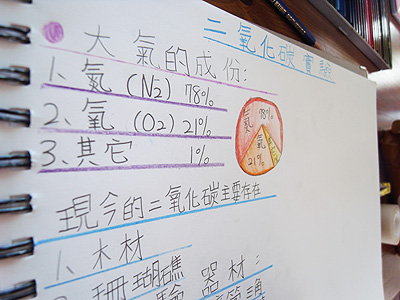 二氧化碳實驗
大氣的成份:
1、氮(N2) 78%
2、氧(O2) 21%
3、其它 1%
氮 78%
氧
21%
現今的二氧化碳主要存在
1、木材
2、珊瑚礁
器材: